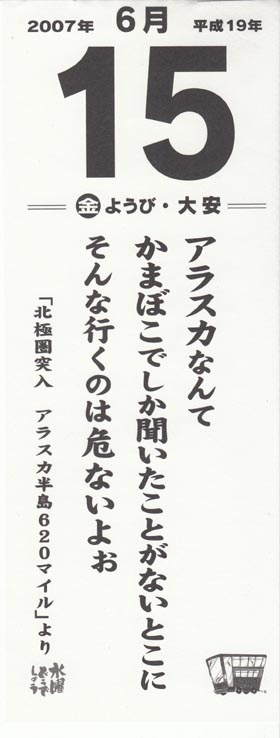 2007年 6月 平成19年
15
金ようび・大安
アラスカなんて
かまぼこでしか聞いたことがないとこに
そんな行くのは危ないよぉ
「北極圏突入 アラスカ半島620マイル」より
水曜
どうで
しょう